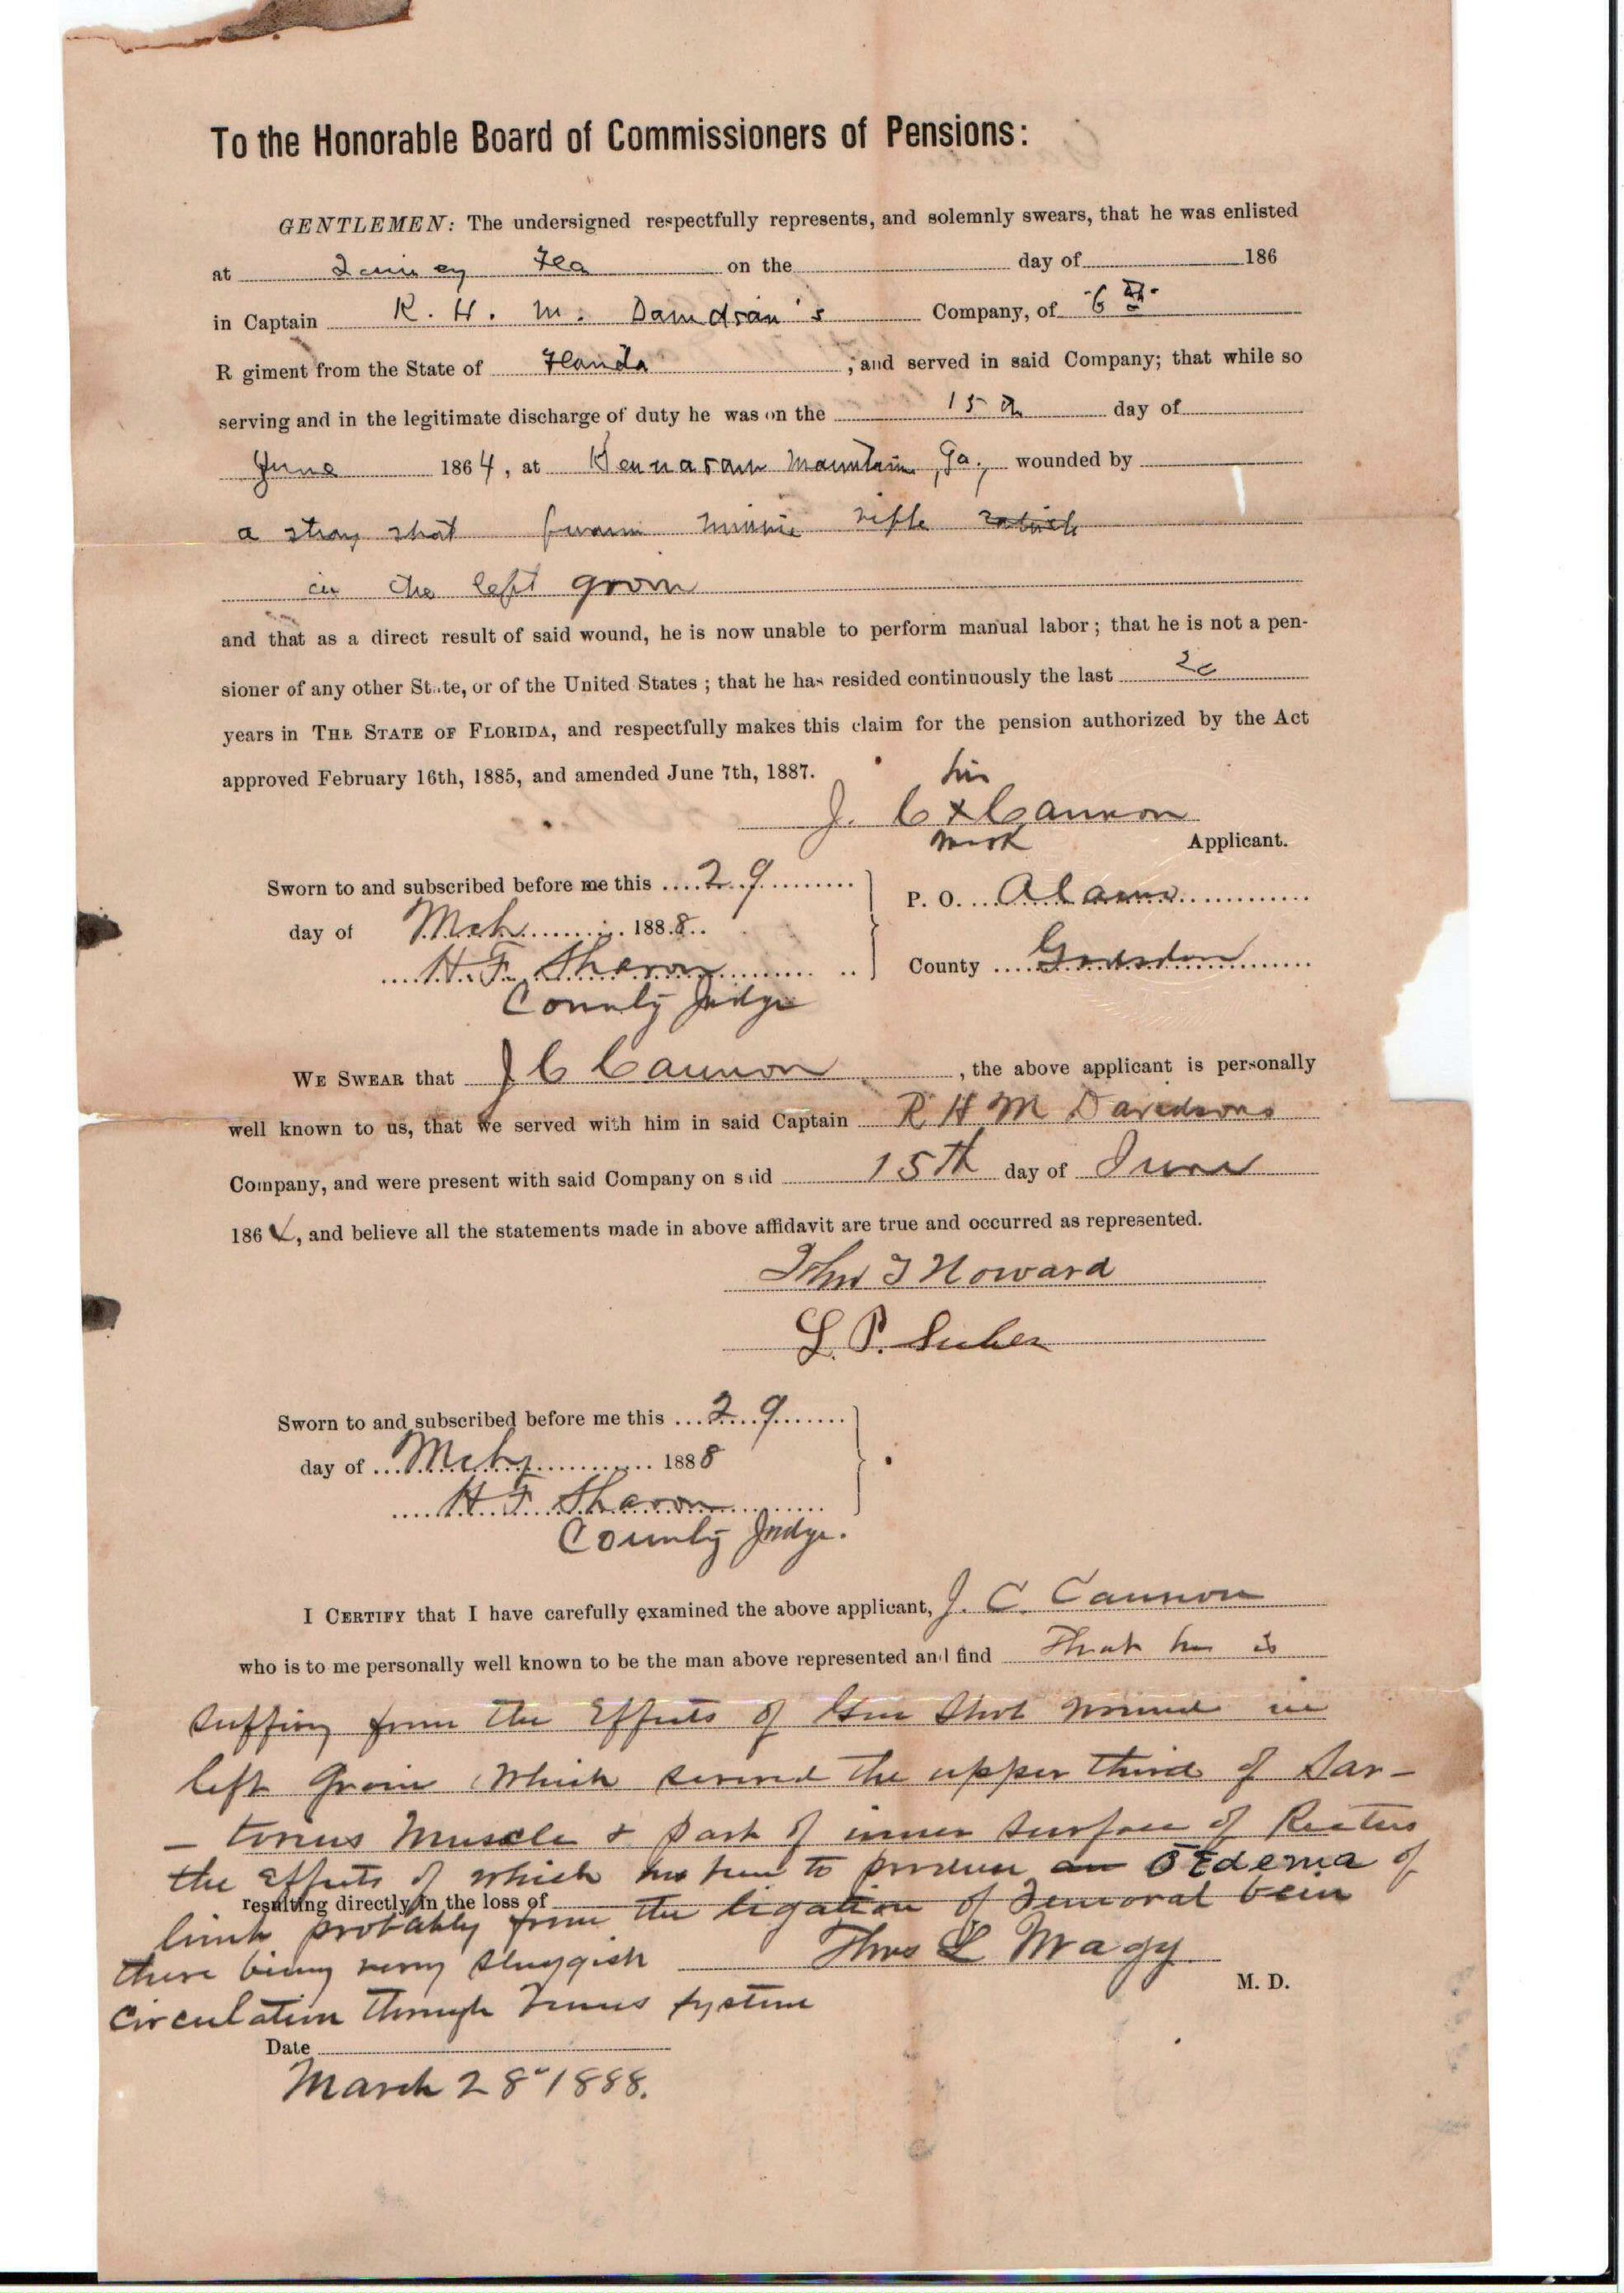 To the Honorable Board of Commissioners of Pensions:
GENTLEMEN: The undersigned respectfully represents, and solemnly swears, that he was enlisted
at Quincy Fla on the day of 186
in Captain R. H. M. Davidson's Company, of 6th
R giment from the State of Florida ; and served in said Company; that while so
serving and in the legitimate discharge of duty he was on the 15th day of
June 1864, at Kennasaw Mountain, Ga., wounded by
a stray shot from minnie rifle
in the left groin
and that as a direct result of said wound, he is now unable to perform manual labor; that he is not a pen-
sioner of any other State, or of the United States; that he has resided continuously the last 20
years in THE STATE OF FLORIDA, and respectfully makes this claim for the pension authorized by the Act
approved February 16th, 1885, and amended June 7th, 1887.
his
J. C x Cannon
mark Applicant.
Sworn to and subscribed before me this 29
day of Mch 1888
H. F. Sharon
County Judge
P. O. Alamo
County Gadsden
WE SWEAR that J C Cannon, the above applicant is personally
well known to us, that we served with him in said Captain R H M Davidsons
Company, and were present with said Company on said 15th day of June
1864, and believe all the statements made in above affidavit are true and occurred as represented.
John T Howard
L. P. Suber
Sworn to and subscribed before me this 29
day of Mch 1888
H. F. Sharon
County Judge.
I CERTIFY that I have carefully examined the above applicant, J. C. Cannon
who is to me personally well known to be the man above represented and find That he is
suffing from the Effects of Gun Shot wound in
left Groin Which severed the upper third of Sar-
- torius Muscle & part of inner surface of Rectus
the Effects of which has been to produce an OEdema of
resulting directly in the loss of
limb probably from the ligation of Femoral vein
there being very sluggish
Thos L Magy
M. D.
circulation through Venus system
Date
March 28" 1888.